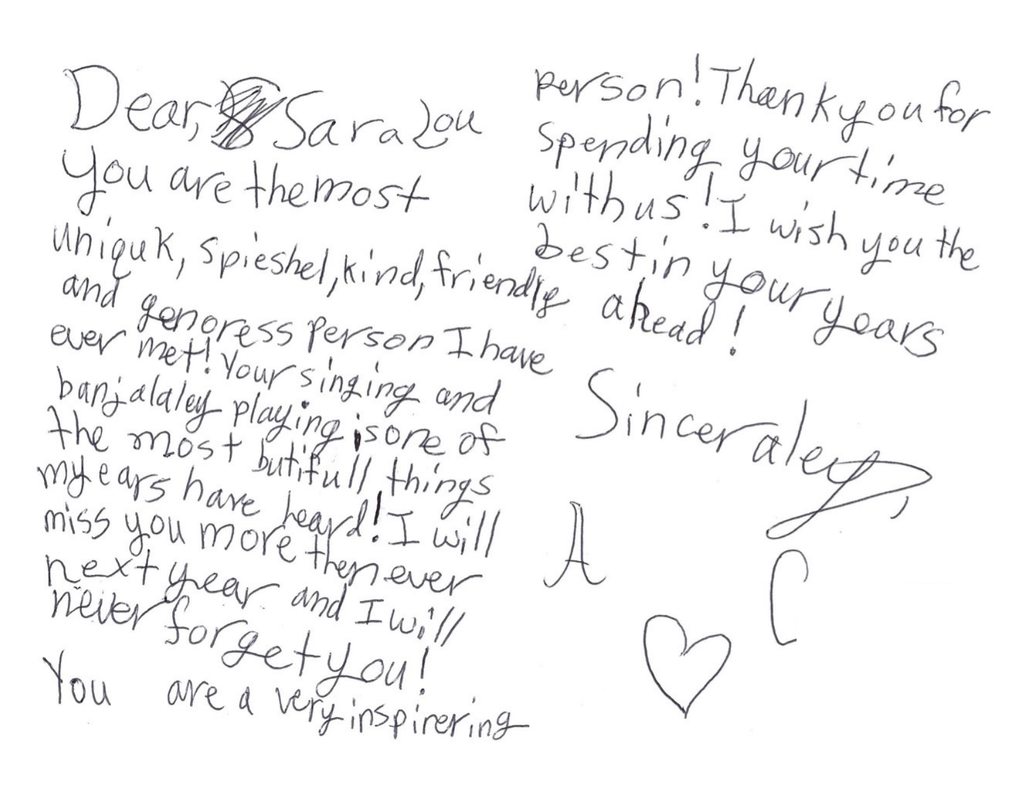 Dear, Sara Lou
You are the most
uniquk, spieshel, kind, friendly
and genoress person I have
ever met! Your singing and
banjalaley playing is one of
the most butifull things
my ears have heard! I will
miss you more then ever
next year and I will
never forget you!
You are a very inspirering
person! Thank you for
spending your time
with us! I wish you the
best in your years
ahead!
Sinceraley,
A
C